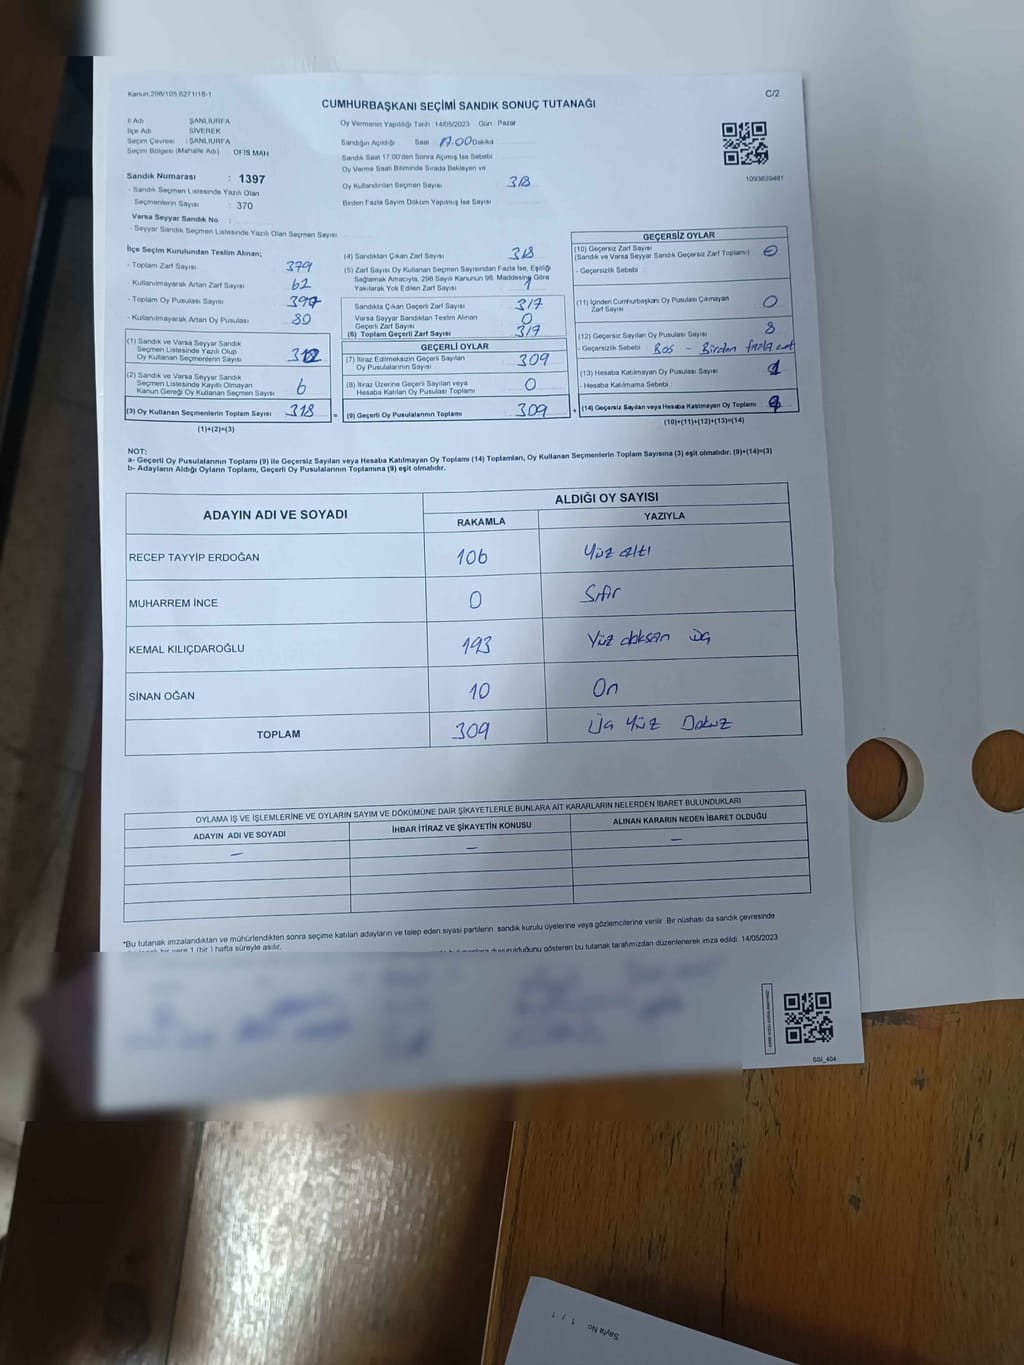 Kanun.298/105,6271/18-1
C/2
CUMHURBAŞKANI SEÇİMİ SANDIK SONUÇ TUTANAĞI
İl Adı ŞANLIURFA
İlçe Adı SİVEREK
Seçim Çevresi : ŞANLIURFA
Seçim Bölgesi (Mahalle Adı) OFIS MAH
Sandık Numarası : 1397
- Sandık Seçmen Listesinde Yazılı Olan
Seçmenlerin Sayısı : 370
Varsa Seyyar Sandık No :
- Seyyar Sandık Seçmen Listesinde Yazılı Olan Seçmen Sayısı
Oy Vermenin Yapıldığı Tarih :14/05/2023 Gün : Pazar
Sandığın Açıldığı Saat 17.00 Dakika
Sandık Saat 17:00'den Sonra Açılmış İse Sebebi
Oy Verme Saati Bitiminde Sırada Bekleyen ve
Oy Kullandırılan Seçmen Sayısı
Birden Fazla Sayım Döküm Yapılmış İse Sayısı
1093839481
İlçe Seçim Kurulundan Teslim Alınan;
- Toplam Zarf Sayısı 379
- Kullanılmayarak Artan Zarf Sayısı 62
- Toplam Oy Pusulası Sayısı
- Kullanılmayarak Artan Oy Pusulası 80
(1) Sandık ve Varsa Seyyar Sandık
Seçmen Listesinde Yazılı Olup
Oy Kullanan Seçmenlerin Sayısı 312
(2) Sandık ve Varsa Seyyar Sandık
Seçmen Listesinde Kayıtlı Olmayan
Kanun Gereği Oy Kullanan Seçmen Sayısı 6
(3) Oy Kullanan Seçmenlerin Toplam Sayısı 318 =
(1)+(2)=(3)
(4) Sandıktan Çıkan Zarf Sayısı 318
(5) Zarf Sayısı Oy Kullanan Seçmen Sayısından Fazla İse, Eşitliği
Sağlamak Amacıyla, 298 Sayılı Kanunun 98. Maddesine Göre
Yakılarak Yok Edilen Zarf Sayısı 1
Sandıkta Çıkan Geçerli Zarf Sayısı 317
Varsa Seyyar Sandıktan Teslim Alınan
Geçerli Zarf Sayısı 0
(6) Toplam Geçerli Zarf Sayısı 317
GEÇERLİ OYLAR
(7) İtiraz Edilmeksizin Geçerli Sayılan
Oy Pusulalarının Sayısı 309
(8) İtiraz Üzerine Geçerli Sayılan veya
Hesaba Katılan Oy Pusulası Toplamı 0
(9) Geçerli Oy Pusulalarının Toplamı 309 +
GEÇERSİZ OYLAR
(10) Geçersiz Zarf Sayısı
(Sandık ve Varsa Seyyar Sandık Geçersiz Zarf Toplamı)
- Geçersizlik Sebebi
(11) İçinden Cumhurbaşkanı Oy Pusulası Çıkmayan
Zarf Sayısı 0
(12) Geçersiz Sayılan Oy Pusulası Sayısı 8
- Geçersizlik Sebebi Boş - Birden fazla
(13) Hesaba Katılmayan Oy Pusulası Sayısı
- Hesaba Katılmama Sebebi
(14) Geçersiz Sayılan veya Hesaba Katılmayan Oy Toplamı
(10)+(11)+(12)+(13)=(14)
NOT:
a- Geçerli Oy Pusulalarının Toplamı (9) ile Geçersiz Sayılan veya Hesaba Katılmayan Oy Toplamı (14) Toplamları, Oy Kullanan Seçmenlerin Toplam Sayısına (3) eşit olmalıdır. (9)+(14)=(3)
b- Adayların Aldığı Oyların Toplamı, Geçerli Oy Pusulalarının Toplamına (9) eşit olmalıdır.
ADAYIN ADI VE SOYADI ALDIĞI OY SAYISI
RAKAMLA YAZIYLA
RECEP TAYYİP ERDOĞAN 106 Yüz altı
MUHARREM İNCE 0 Sıfır
KEMAL KILIÇDAROĞLU 193 Yüz doksan üç
SİNAN OĞAN 10 On
TOPLAM 309 Üç Yüz Dokuz
OYLAMA İŞ VE İŞLEMLERİNE VE OYLARIN SAYIM VE DÖKÜMÜNE DAİR ŞİKAYETLERLE BUNLARA AİT KARARLARIN NELERDEN İBARET BULUNDUKLARI
ADAYIN ADI VE SOYADI İHBAR İTİRAZ VE ŞİKAYETİN KONUSU ALINAN KARARIN NEDEN İBARET OLDUĞU
— — —
"Bu tutanak imzalandıktan ve mühürlendikten sonra seçime katılan adayların ve talep eden siyasi partilerin sandık kurulu üyelerine veya gözlemcilerine verilir. Bir nüshası da sandık çevresinde
bir yere 1 (bir ) hafta süreyle asılır.
gösteren bu tutanak tarafımızdan düzenlenerek imza edildi. 14/05/2023
SSI_404
Sayfa No 1 / 1